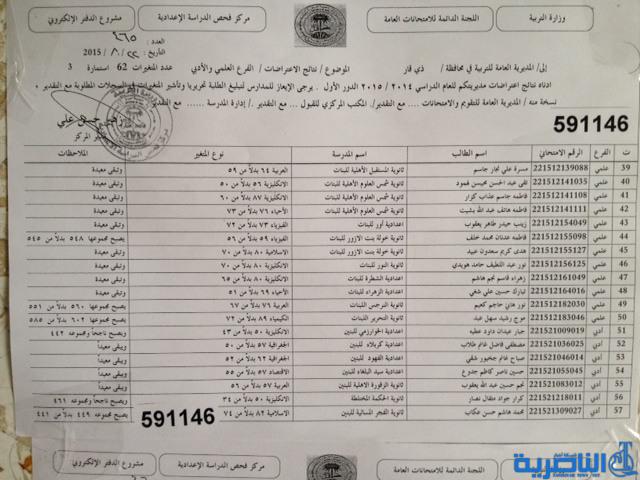 وزارة التربية
اللجنة الدائمة للامتحانات العامة
مركز فحص الدراسة الإعدادية
مشروع الدفتر الإلكتروني
العدد ٤٦٥
التاريخ ٢٢/ ٨ / 2015
إلى/ المديرية العامة للتربية في محافظة/ ذي قار الموضوع / نتائج الاعتراضات / الفرع العلمي والأدبي عدد المتغيرات 62 استمارة 3
ادناه نتائج اعتراضات مديريتكم للعام الدراسي ٢٠١٤ / ٢٠١٥ الدور الأول . يرجى الإيعاز للمدارس لتبليغ الطلبة تحريريا وتأشير المتغيرات في السجلات المطلوبة مع التقدير .
نسخة منه / المديرية العامة للتقويم والامتحانات ... مع التقدير/. المكتب المركزي للقبول ... مع التقدير. / إدارة المدرسة ... مع التقدير
مدير المركز
591146
ت الفرع الرقم الامتحاني اسم الطالب اسم المدرسة نوع المتغير الملاحظات
39 علمي 221512139088 مسرة علي نجار جاسم ثانوية المستقبل الأهلية للبنات العربية ٦٤ بدلاً من ٥٩ وتبقى معيدة
40 علمي 221512141035 تقى عبد الحسن محيسن فهود ثانوية شمس العلوم الأهلية للبنات الانكليزية ٥٦ بدلاً من ٥٠ وتبقى معيدة
41 علمي 221512141108 فاطمه جاسم عذاب كزار ثانوية شمس العلوم الأهلية للبنات الانكليزية ٨٧ بدلاً من ٦٠ وتبقى معيدة
42 علمي 221512141111 فاطمه هاتف عبد الله بشيت ثانوية شمس العلوم الأهلية للبنات الأحياء ٧٦ بدلاً من ٧٣ وتبقى معيدة
43 علمي 221512154049 زينب حيدر طاهر يعقوب ثانوية أور للبنات الفيزياء ٧٣ بدلاً من ٧٢ وتبقى معيدة
44 علمي 221512155098 فاطمه عدنان محمد خلف ثانوية خولة بنت الازور للبنات الفيزياء ٥٩ بدلاً من ٥٦ يصبح مجموعها ٥٤٨ بدلاً من ٥٤٥
45 علمي 221512155127 هدى كريم سعدون عبيد ثانوية خولة بنت الازور للبنات الاسلامية ٨٠ بدلاً من ٧٠ وتبقى معيدة
46 علمي 221512156125 نور عبد اللطيف حامد هويدي ثانوية النور للبنات الانكليزية ٨٠ بدلاً من ٧٠ وتبقى معيدة
47 علمي 221512161049 زهراء قاسم نجم هاشم اعدادية الشطرة للبنات الانكليزية ٨٠ بدلاً من ٦٥ وتبقى معيدة
48 علمي 221512164016 تبارك حسين علي شهي اعدادية الزهراء للبنات الأحياء ٦٩ بدلاً من ٥١ وتبقى معيدة
49 علمي 221512182030 نور هادي حاجم كعيم ثانوية النرجس للبنات العربية ٧٦ بدلاً من ٦٧ يصبح مجموعها ٥٦٠ بدلاً من ٥٥١
50 علمي 221512183046 موج رشيد سهل هليل ثانوية التحرير للبنات الكيمياء ٨٩ بدلاً من ٧٢ يصبح مجموعها ٦٠٢ بدلاً من ٥٨٥
51 أدبي 221521009019 جبار عيدان داود عطيه اعدادية الخوارزمي للبنين الانكليزية ٥٠ بدلاً من ٤٣ ويصبح ناجحاً ومجموعه ٤٤٢
52 أدبي 221521036025 مصطفى فاضل غانم طلاب اعدادية كربلاء للبنين الجغرافية ٥٧ بدلاً من ٥٠ ويبقى معيداً
53 أدبي 221521046014 صباح غانم جخيور شفي اعدادية الفهود للبنين الجغرافية ٦٢ بدلاً من ٥٢ ويبقى معيداً
54 أدبي 221521055045 حسين ناصر كاظم جدوع اعدادية سيد البلغاء للبنين الاقتصاد ٥٧ بدلاً من ٥٥ ويبقى معيداً
55 أدبي 221521083012 نجم حسين عبد الله يعقوب ثانوية الزقورة الاهلية للبنين العربية ٥٧ بدلاً من ٥٦ ويبقى معيداً
56 أدبي 221521218011 كرار جواد مثقال نصار ثانوية الحكمة المختلطة الانكليزية ٥٠ بدلاً من ٣٤ ويصبح ناجحاً ومجموعه ٤٦١
57 أدبي 221521309027 محمد هاشم حسن عكاب ثانوية الفجر المسائية للبنين الاسلامية ٨٢ بدلاً من ٧٤ يصبح مجموعه ٤٤٩ بدلاً من ٤٤١
591146
اللجنة الدائمة للامتحانات العامة
مركز فحص الدراسة الإعدادية
مشروع الدفتر الإلكتروني
شبكة أخبار
الناصرية